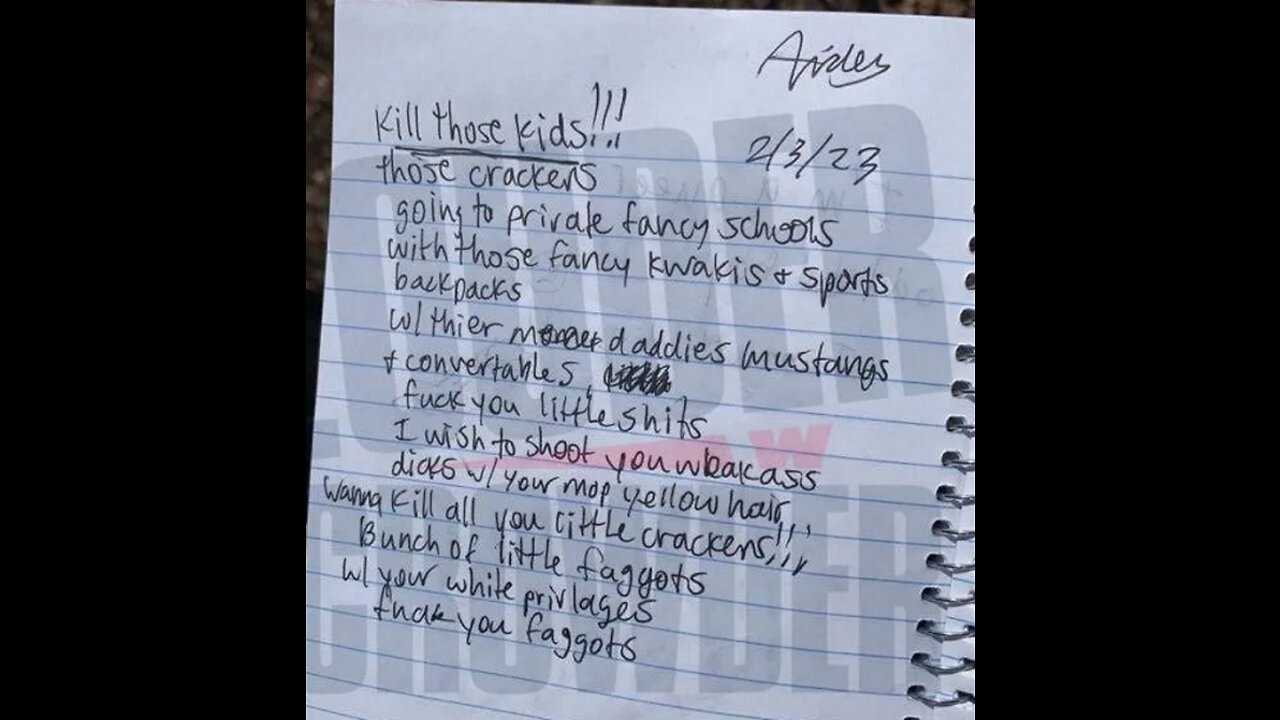 Aiden
Kill those kids!!!
2/3/23
those crackers
going to private fancy schools
with those fancy kwakis + sports
backpacks
w/ thier daddies mustangs
+ convertables,
fuck you little shits
I wish to shoot you weakass
dicks w/ your mop yellow hair,,,
wanna kill all you little crackers!!!,
Bunch of little faggots
w/ your white privlages
fuck you faggots
LOUDER
CROWDER